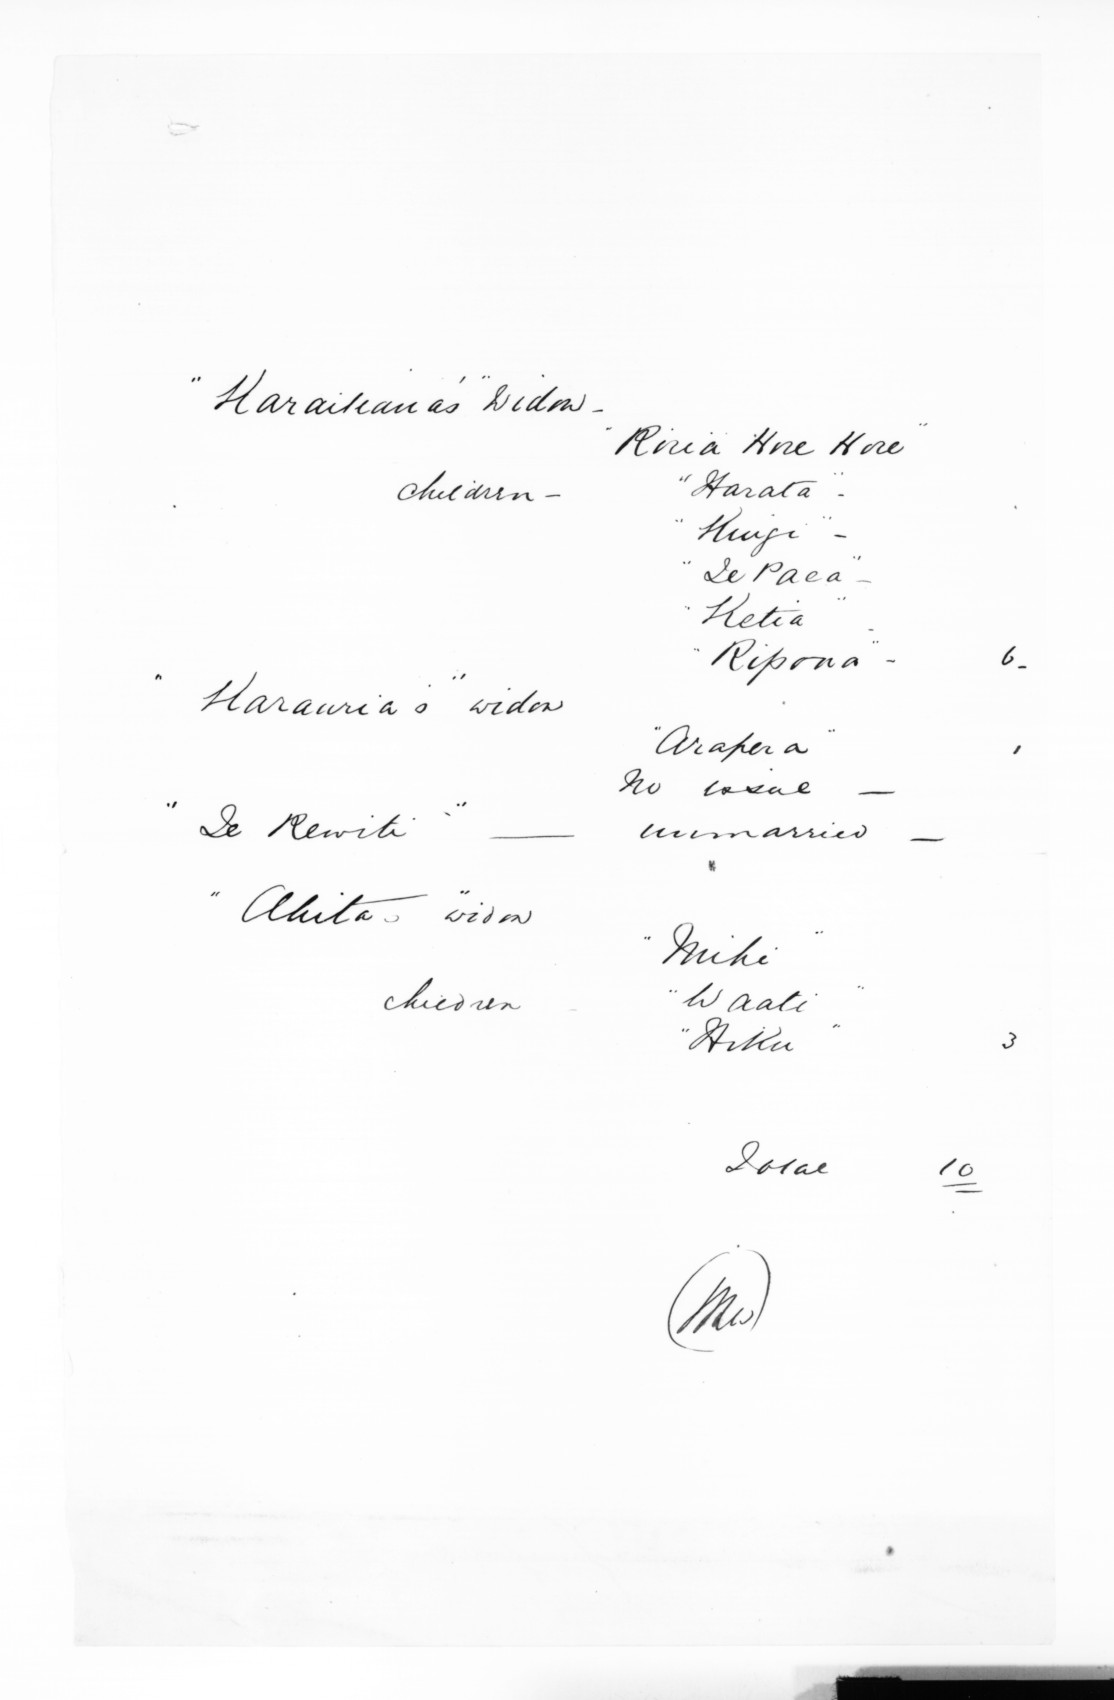 "Karaikana's" Widow -
"Riria Hore Hore"
children - "Harata" -
"Kingi" -
"Te Paea" -
"Ketia" -
"Ripona" - 6 -
"Karauria's" widow
"Arapera" 1
No issue —
"Te Rewiti" — unmarried —
"Ahitas" widow
"Mihi"
children "Waati"
"Hiku" 3
Total 10